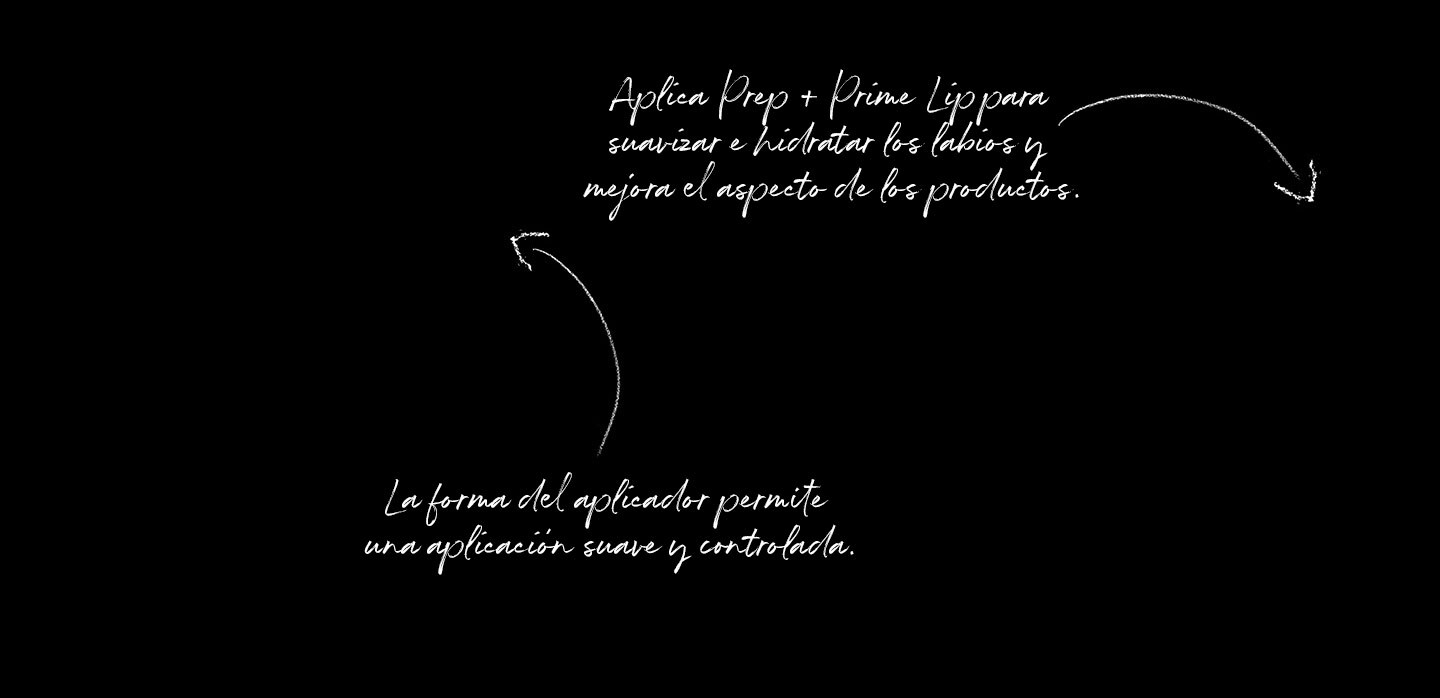 Aplica Prep + Prime Lip para
suavizar e hidratar los labios y
mejora el aspecto de los productos.
La forma del aplicador permite
una aplicación suave y controlada.